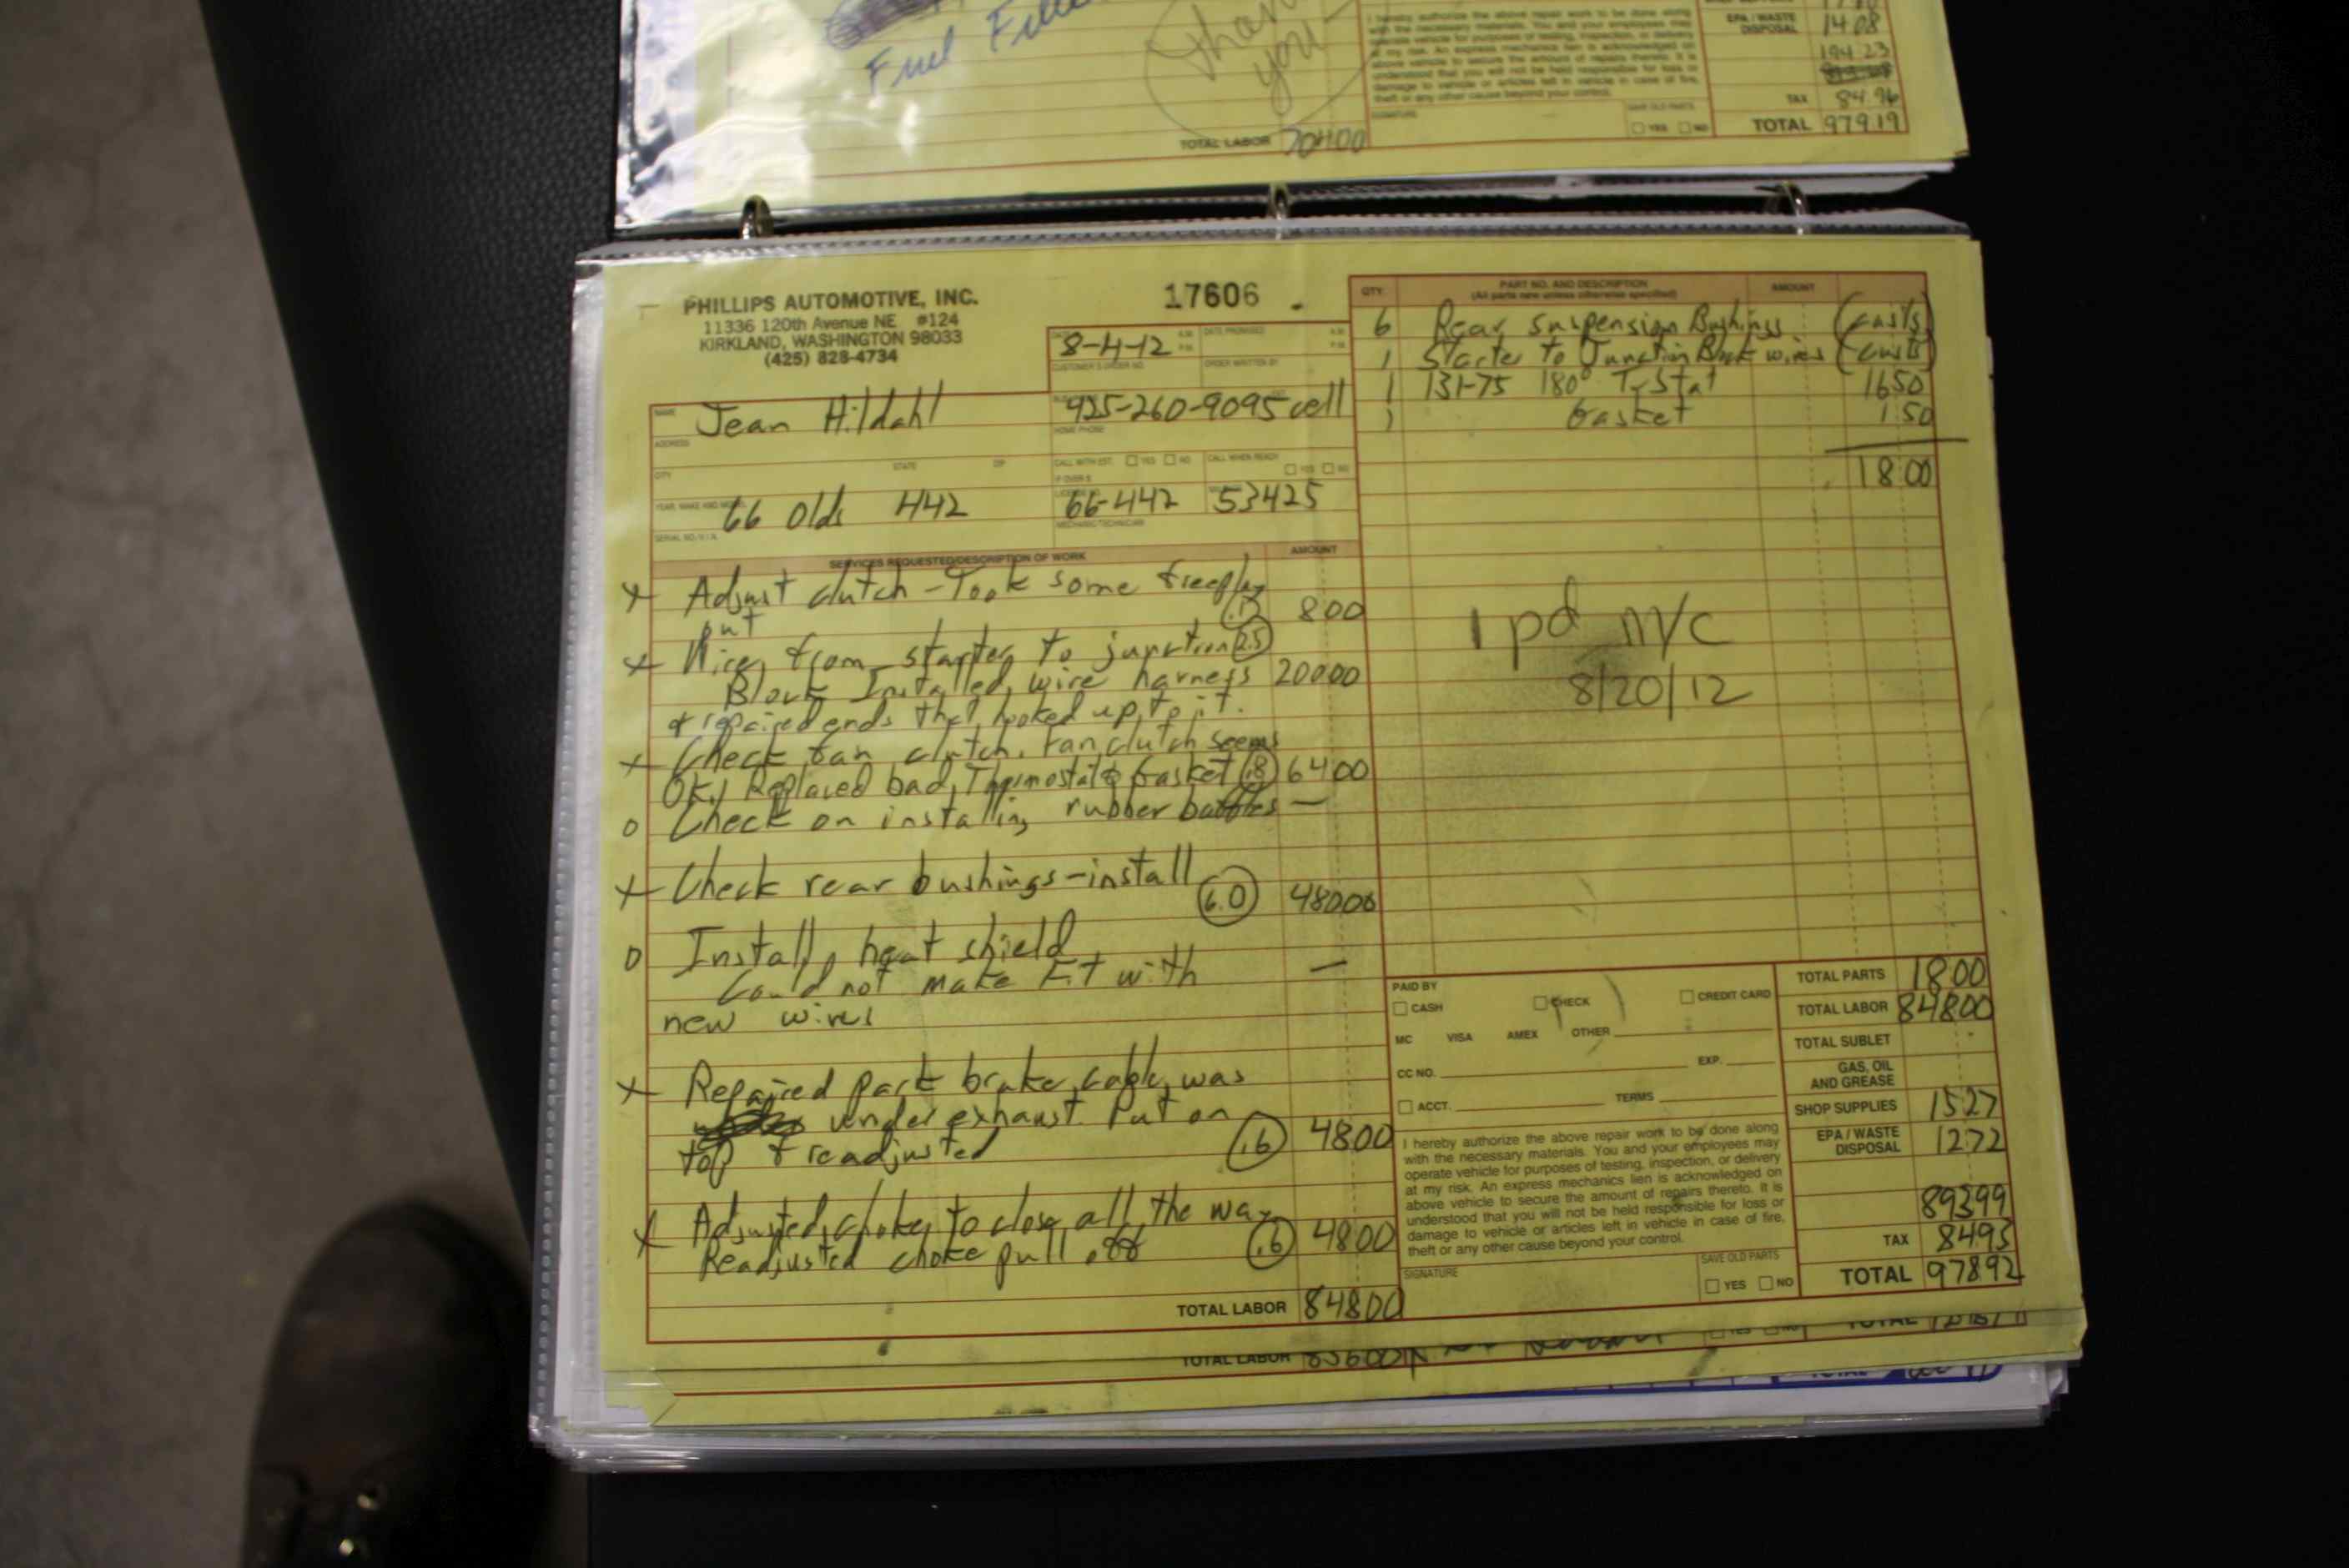 Fuel
Thank
you
I hereby authorize the above repair work to be done along
with the necessary materials. You and your employees may
operate vehicle for purposes of testing, inspection, or delivery
at my risk. An express mechanics lien is acknowledged on
above vehicle to secure the amount of repairs thereto. It is
understood that you will not be held responsible for loss or
damage to vehicle or articles left in vehicle in case of fire,
theft or any other cause beyond your control.
SIGNATURE
SAVE OLD PARTS
YES NO
EPA / WASTE
DISPOSAL 14 08
194 23
TAX 84.96
TOTAL 979 19
TOTAL LABOR 704 00
PHILLIPS AUTOMOTIVE, INC.
11336 120th Avenue NE #124
KIRKLAND, WASHINGTON 98033
(425) 828-4734
17606
DATE 8-4-12
DATE PROMISED
CUSTOMER'S ORDER NO.
ORDER WRITTEN BY
NAME Jean Hildahl
425-260-9095 cell
ADDRESS
HOME PHONE
CITY STATE ZIP
CALL WITH EST. YES NO
IF OVER $
CALL WHEN READY
YES NO
YEAR, MAKE AND MODEL 66 Olds 442
66-442 53425
SERIAL NO./V.I.N.
MECHANIC/TECHNICIAN
SERVICES REQUESTED/DESCRIPTION OF WORK AMOUNT
x Adjust clutch - Took some freeplay
out .1 8 00
x Wires from starter to junction 2.5
Block Installed wire harness 200 00
& repaired ends that hooked up to it.
x Check fan clutch. Fan clutch seems
OK, Replaced bad Thermostat & Gasket .8 64 00
o Check on installing rubber baffles —
x Check rear bushings - install
6.0 480 00
o Install heat shield
Could not make Fit with —
new wires
x Repaired park brake cable, was
under exhaust. Put on
top & readjusted .6 48 00
x Adjusted choke to close all the way
Readjusted choke pull off .6 48 00
TOTAL LABOR 848 00
QTY. PART NO. AND DESCRIPTION AMOUNT
(All parts new unless otherwise specified)
6 Rear suspension Bushings (custs)
1 Starter to Junction Block wires (custs)
1 131-75 180° T-Stat 16 50
1 Gasket 1 50
18 00
pd m/c
8/20/12
PAID BY
CASH CHECK CREDIT CARD
MC VISA AMEX OTHER
EXP.
CC NO.
ACCT. TERMS
I hereby authorize the above repair work to be done along
with the necessary materials. You and your employees may
operate vehicle for purposes of testing, inspection, or delivery
at my risk. An express mechanics lien is acknowledged on
above vehicle to secure the amount of repairs thereto. It is
understood that you will not be held responsible for loss or
damage to vehicle or articles left in vehicle in case of fire,
theft or any other cause beyond your control.
SIGNATURE
SAVE OLD PARTS
YES NO
TOTAL PARTS 18 00
TOTAL LABOR 848 00
TOTAL SUBLET
GAS, OIL
AND GREASE
SHOP SUPPLIES 15 27
EPA / WASTE
DISPOSAL 12 72
893 99
TAX 84 93
TOTAL 978 92
YES NO
TOTAL
TOTAL LABOR 836 00
TOTAL